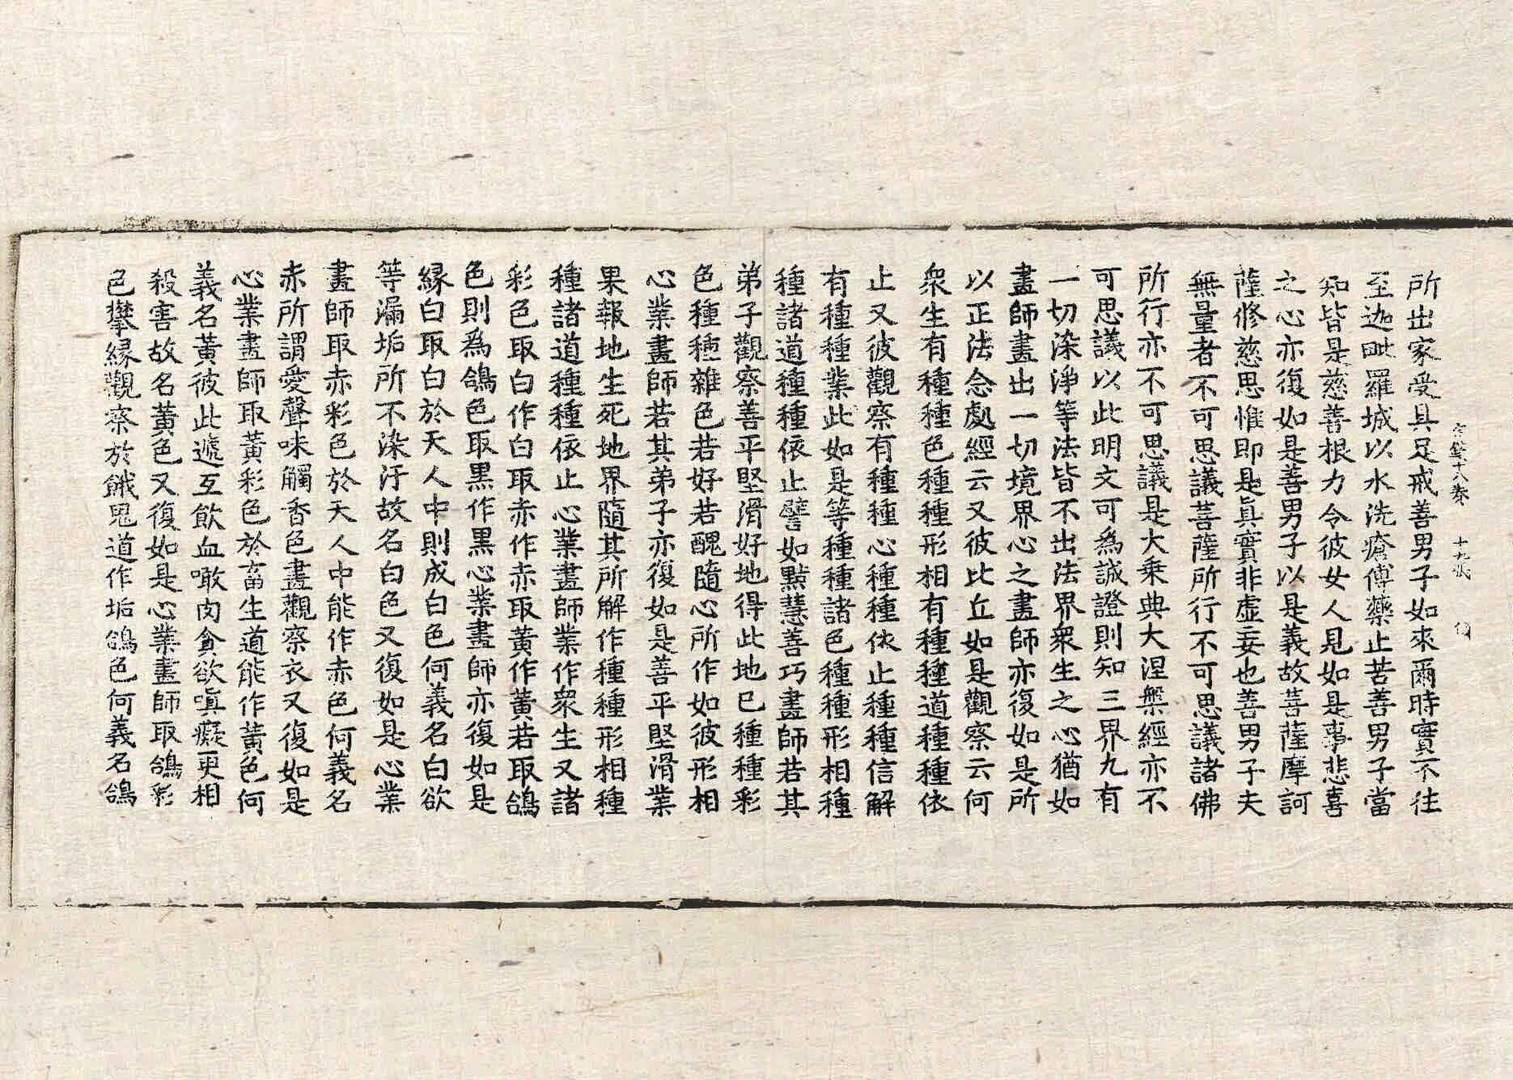 所出家受具足戒善男子如來爾時實不往
至迦毗羅城以水洗瘡傅藥止苦善男子當
知皆是慈善根力令彼女人見如是事悲喜
之心亦復如是善男子以是義故菩薩摩訶
薩修慈思惟即是真實非虛妄也善男子夫
無量者不可思議菩薩所行不可思議諸佛
所行亦不可思議是大乗典大涅槃經亦不
可思議以此明文可為誠證則知三界九有
一切染淨等法皆不出法界衆生之心猶如
畫師畫出一切境界心之畫師亦復如是所
以正法念處經云又彼比丘如是觀察云何
衆生有種種色種種形相有種種道種種依
止又彼觀察有種種心種種依止種種信解
有種種業此如是等種種諸色種種形相種
種諸道種種依止譬如黠慧善巧畫師若其
弟子觀察善平堅滑好地得此地已種種彩
色種種雜色若好若醜隨心所作如彼形相
心業畫師若其弟子亦復如是善平堅滑業
果報地生死地界隨其所解作種種形相種
種諸道種種依止心業畫師業作衆生又諸
彩色取白作白取赤作赤取黃作黃若取鴿
色則為鴿色取黑作黑心業畫師亦復如是
緣白取白於天人中則成白色何義名白欲
等漏垢所不染汙故名白色又復如是心業
畫師取赤彩色於天人中能作赤色何義名
赤所謂愛聲味觸香色畫觀察衣又復如是
心業畫師取黃彩色於畜生道能作黃色何
義名黃彼此遞互飲血噉肉貪欲嗔癡更相
殺害故名黃色又復如是心業畫師取鴿彩
色攀緣觀察於餓鬼道作垢鴿色何義名鴿